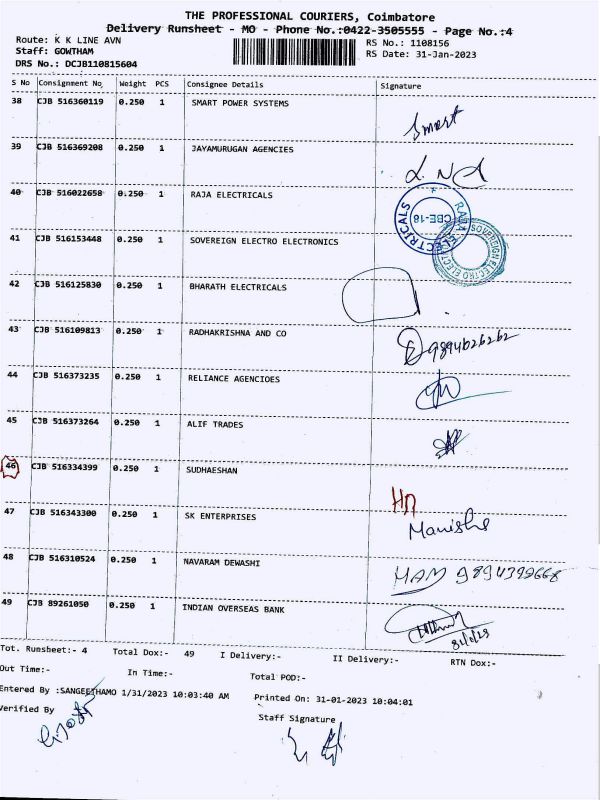 THE PROFESSIONAL COURIERS, Coimbatore
Delivery Runsheet - MO - Phone No.:0422-3505555 - Page No.:4
Route: K K LINE AVN
RS No.: 1108156
Staff: GOWTHAM
RS Date: 31-Jan-2023
DRS No.: DCJB110815604
S No Consignment No Weight PCS Consignee Details Signature
38 CJB 516360119 0.250 1 SMART POWER SYSTEMS
Smart
39 CJB 516369208 0.250 1 JAYAMURUGAN AGENCIES
40 CJB 516022658 0.250 1 RAJA ELECTRICALS
RAJA ELECTRICALS CBE-18
41 CJB 516153448 0.250 1 SOVEREIGN ELECTRO ELECTRONICS
SOVEREIGN ELECTRO
42 CJB 516125830 0.250 1 BHARATH ELECTRICALS
43 CJB 516109813 0.250 1 RADHAKRISHNA AND CO
9894626262
44 CJB 516373235 0.250 1 RELIANCE AGENCIOES
45 CJB 516373264 0.250 1 ALIF TRADES
46 CJB 516334399 0.250 1 SUDHAESHAN
47 CJB 516343300 0.250 1 SK ENTERPRISES
Manisha
48 CJB 516310524 0.250 1 NAVARAM DEWASHI
49 CJB 89261050 0.250 1 INDIAN OVERSEAS BANK
Tot. Runsheet:- 4 Total Dox:- 49 I Delivery:- II Delivery:- RTN Dox:-
Out Time:- In Time:- Total POD:-
Entered By :SANGEETHAMO 1/31/2023 10:03:40 AM Printed On: 31-01-2023 10:04:01
Verified By
Staff Signature